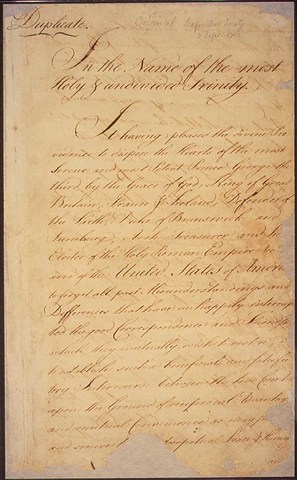 Duplicate.
Definitive Treaty
In the Name of the most
Holy & undivided Trinity.
It having pleased the divine Pro
vidence to dispose the Hearts of the most
Serene and most Potent Prince George the
third, by the Grace of God, King of Great
Britain, France & Ireland, Defender of
the Faith, Duke of Brunswick and
Lunebourg, Arch Treasurer and
Elector of the Holy Roman Empire &c
and of the United States of America
to forget all past Misunderstandings and
Differences that have unhappily interrup
ted the good Correspondence and Friendship
which they mutually wish to restore;
to establish such a beneficial and satisfac
tory Intercourse between the two
upon the Ground of reciprocal Advantages
and mutual Convenience as may
and secure perpetual Peace & Harmony